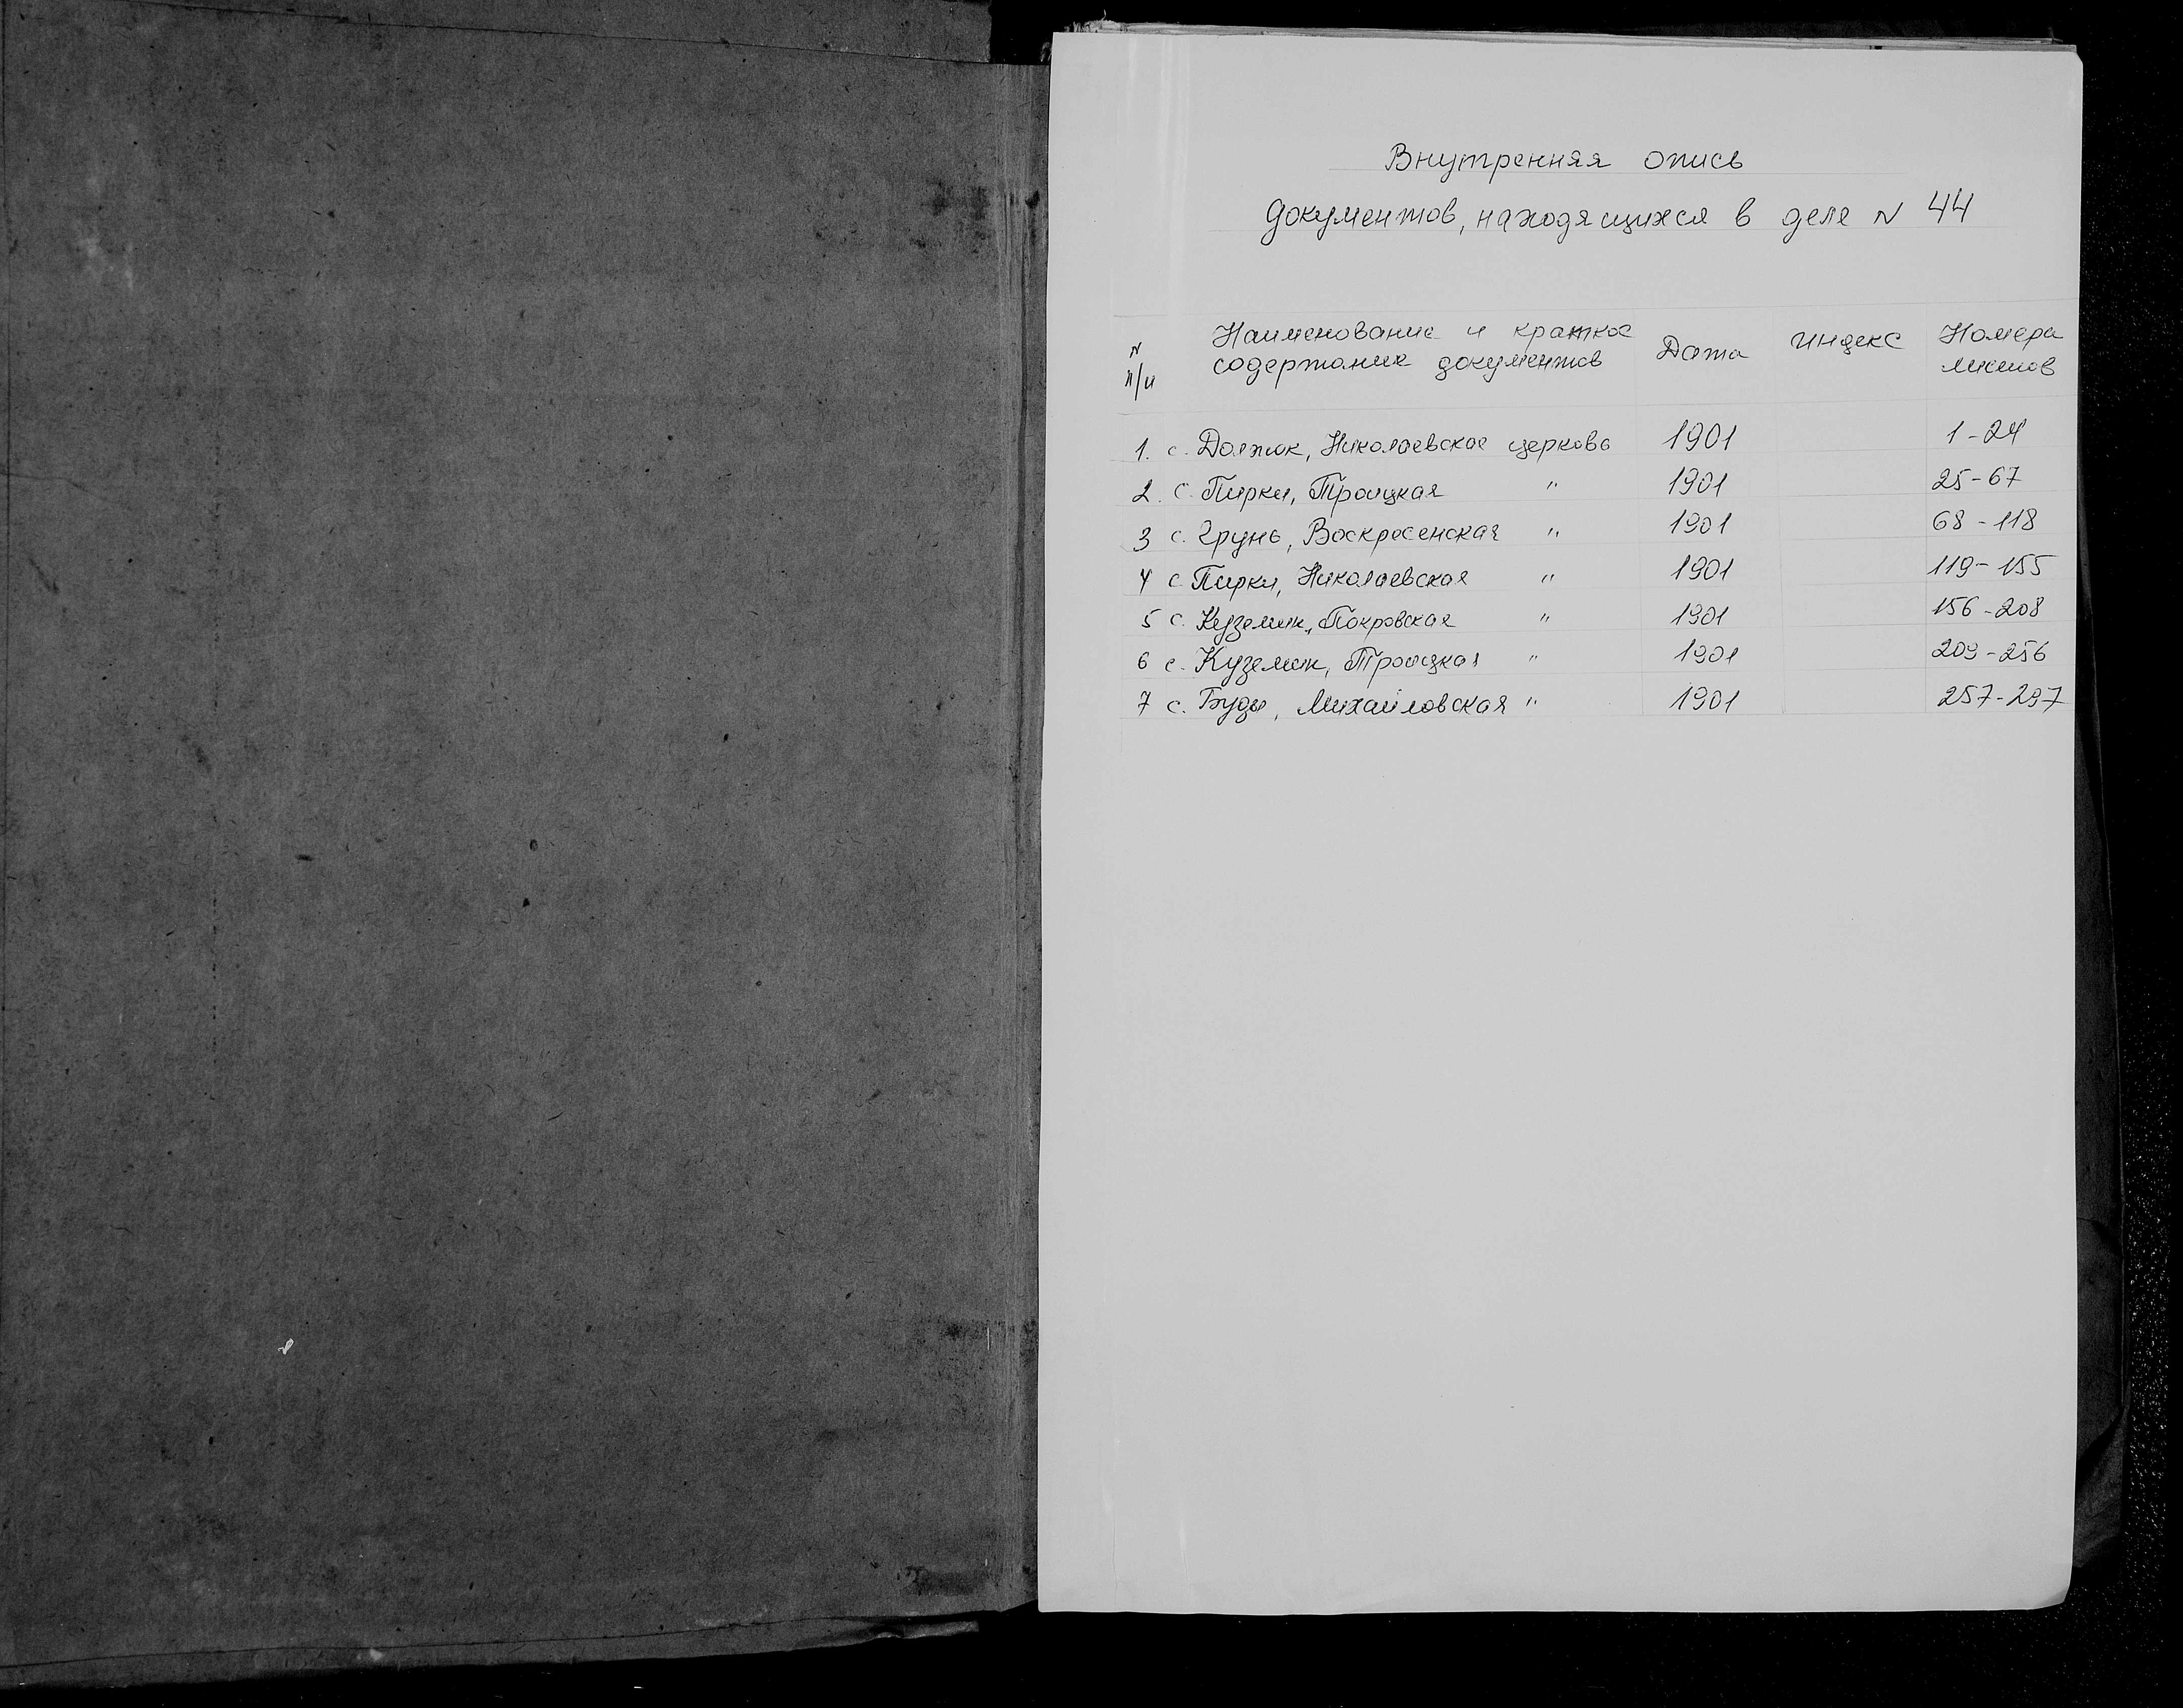 Внутренняя опись
документов, находящихся в деле N 44
N п/п Наименование и краткое содержание документов Дата Индекс Номера листов
1. с. Должик, Николаевская церковь 1901 1-24
2. с. Пирки, Троицкая " 1901 25-67
3 с. Грунь, Воскресенская " 1901 68-118
4 с. Пирки, Николаевская " 1901 119-155
5 с. Куземин, Покровская " 1901 156-208
6 с. Куземин, Троицкая " 1901 209-256
7 с. Буды, Михайловская " 1901 257-297